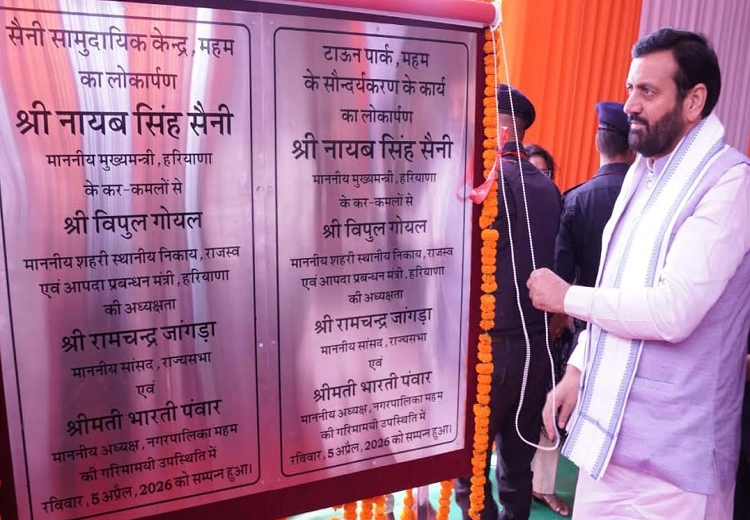 सैनी सामुदायिक केन्द्र, महम
का लोकार्पण
श्री नायब सिंह सैनी
माननीय मुख्यमन्त्री, हरियाणा
के कर-कमलों से
श्री विपुल गोयल
माननीय शहरी स्थानीय निकाय, राजस्व
एवं आपदा प्रबन्धन मंत्री, हरियाणा
की अध्यक्षता
श्री रामचन्द्र जांगड़ा
माननीय सांसद, राज्यसभा
एवं
श्रीमती भारती पंवार
माननीय अध्यक्ष, नगरपालिका महम
की गरिमामयी उपस्थिति में
रविवार, 5 अप्रैल, 2026 को सम्पन्न हुआ।
टाऊन पार्क, महम
के सौन्दर्यकरण के कार्य
का लोकार्पण
श्री नायब सिंह सैनी
माननीय मुख्यमन्त्री, हरियाणा
के कर-कमलों से
श्री विपुल गोयल
माननीय शहरी स्थानीय निकाय, राजस्व
एवं आपदा प्रबन्धन मंत्री, हरियाणा
की अध्यक्षता
श्री रामचन्द्र जांगड़ा
माननीय सांसद, राज्यसभा
एवं
श्रीमती भारती पंवार
माननीय अध्यक्ष, नगरपालिका महम
की गरिमामयी उपस्थिति में
रविवार, 5 अप्रैल, 2026 को सम्पन्न हुआ।